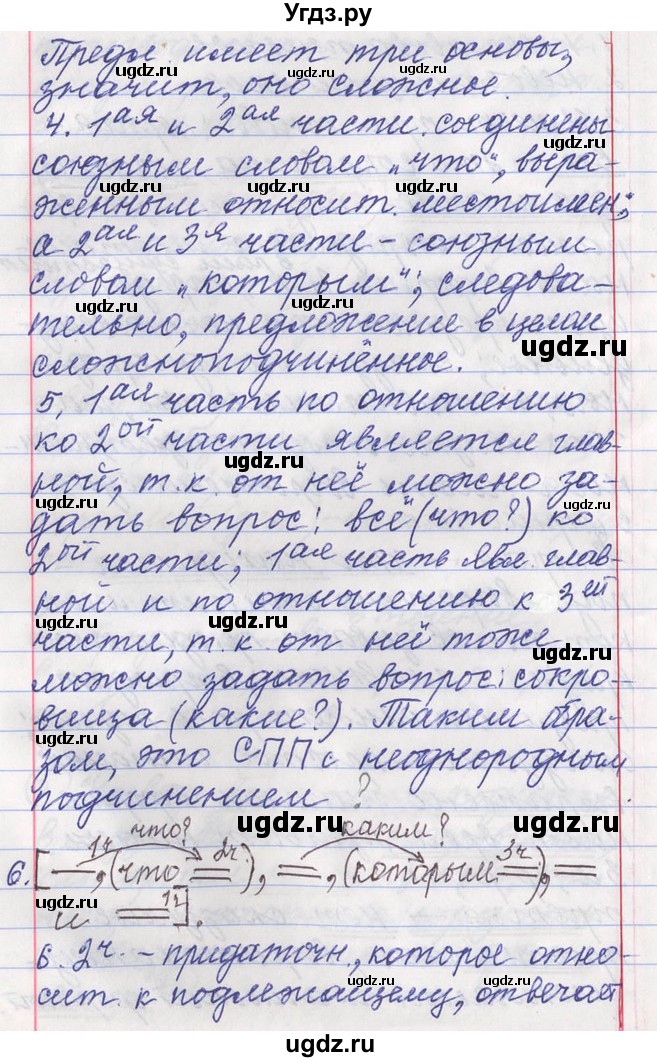 Угдз.ру
Предл имеет три основы,
значит, оно сложное.
4. 1ая и 2ая части соединены
союзным словом „что“, выра-
женным относит. местоимен.,
а 2ая и 3я части – союзным
словом „которым“; следова-
тельно, предложение в целом
сложноподчинённое.
5. 1ая часть по отношению
ко 2ой части является глав-
ной, т.к. от неё можно за-
дать вопрос: всё (что?) ко
2ой части; 1ая часть явл. глав-
ной и по отношению к 3ей
части, т.к. от ней тоже
можно задать вопрос: сокро-
вища (какие?). Таким обра-
зом, это СПП с неоднородным
подчинением ?
что? каким?
6. [— 1ч, (что = 2ч.), =, (которым = 3ч.), =
и = 1ч].
6. 2ч. – придаточн., которое отно-
сит. к подлежащему, отвечает
ugdz.ru